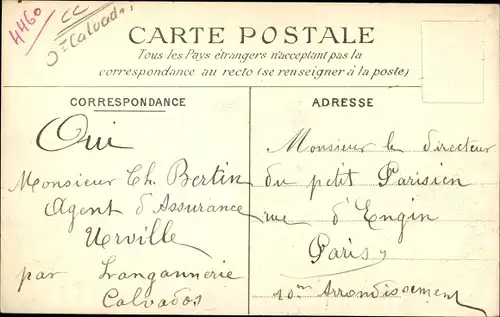 4460
CC
Calvad.
CARTE POSTALE
Tous les Pays étrangers n'acceptant pas la
correspondance au recto (se renseigner à la poste)
CORRESPONDANCE
Oui
Monsieur Ch. Bertin
Agent d'Assurance
Urville
par Langannerie
Calvados
ADRESSE
Monsieur le directeur
du petit Parisien
rue d'Engin
Paris
10me Arrondissement